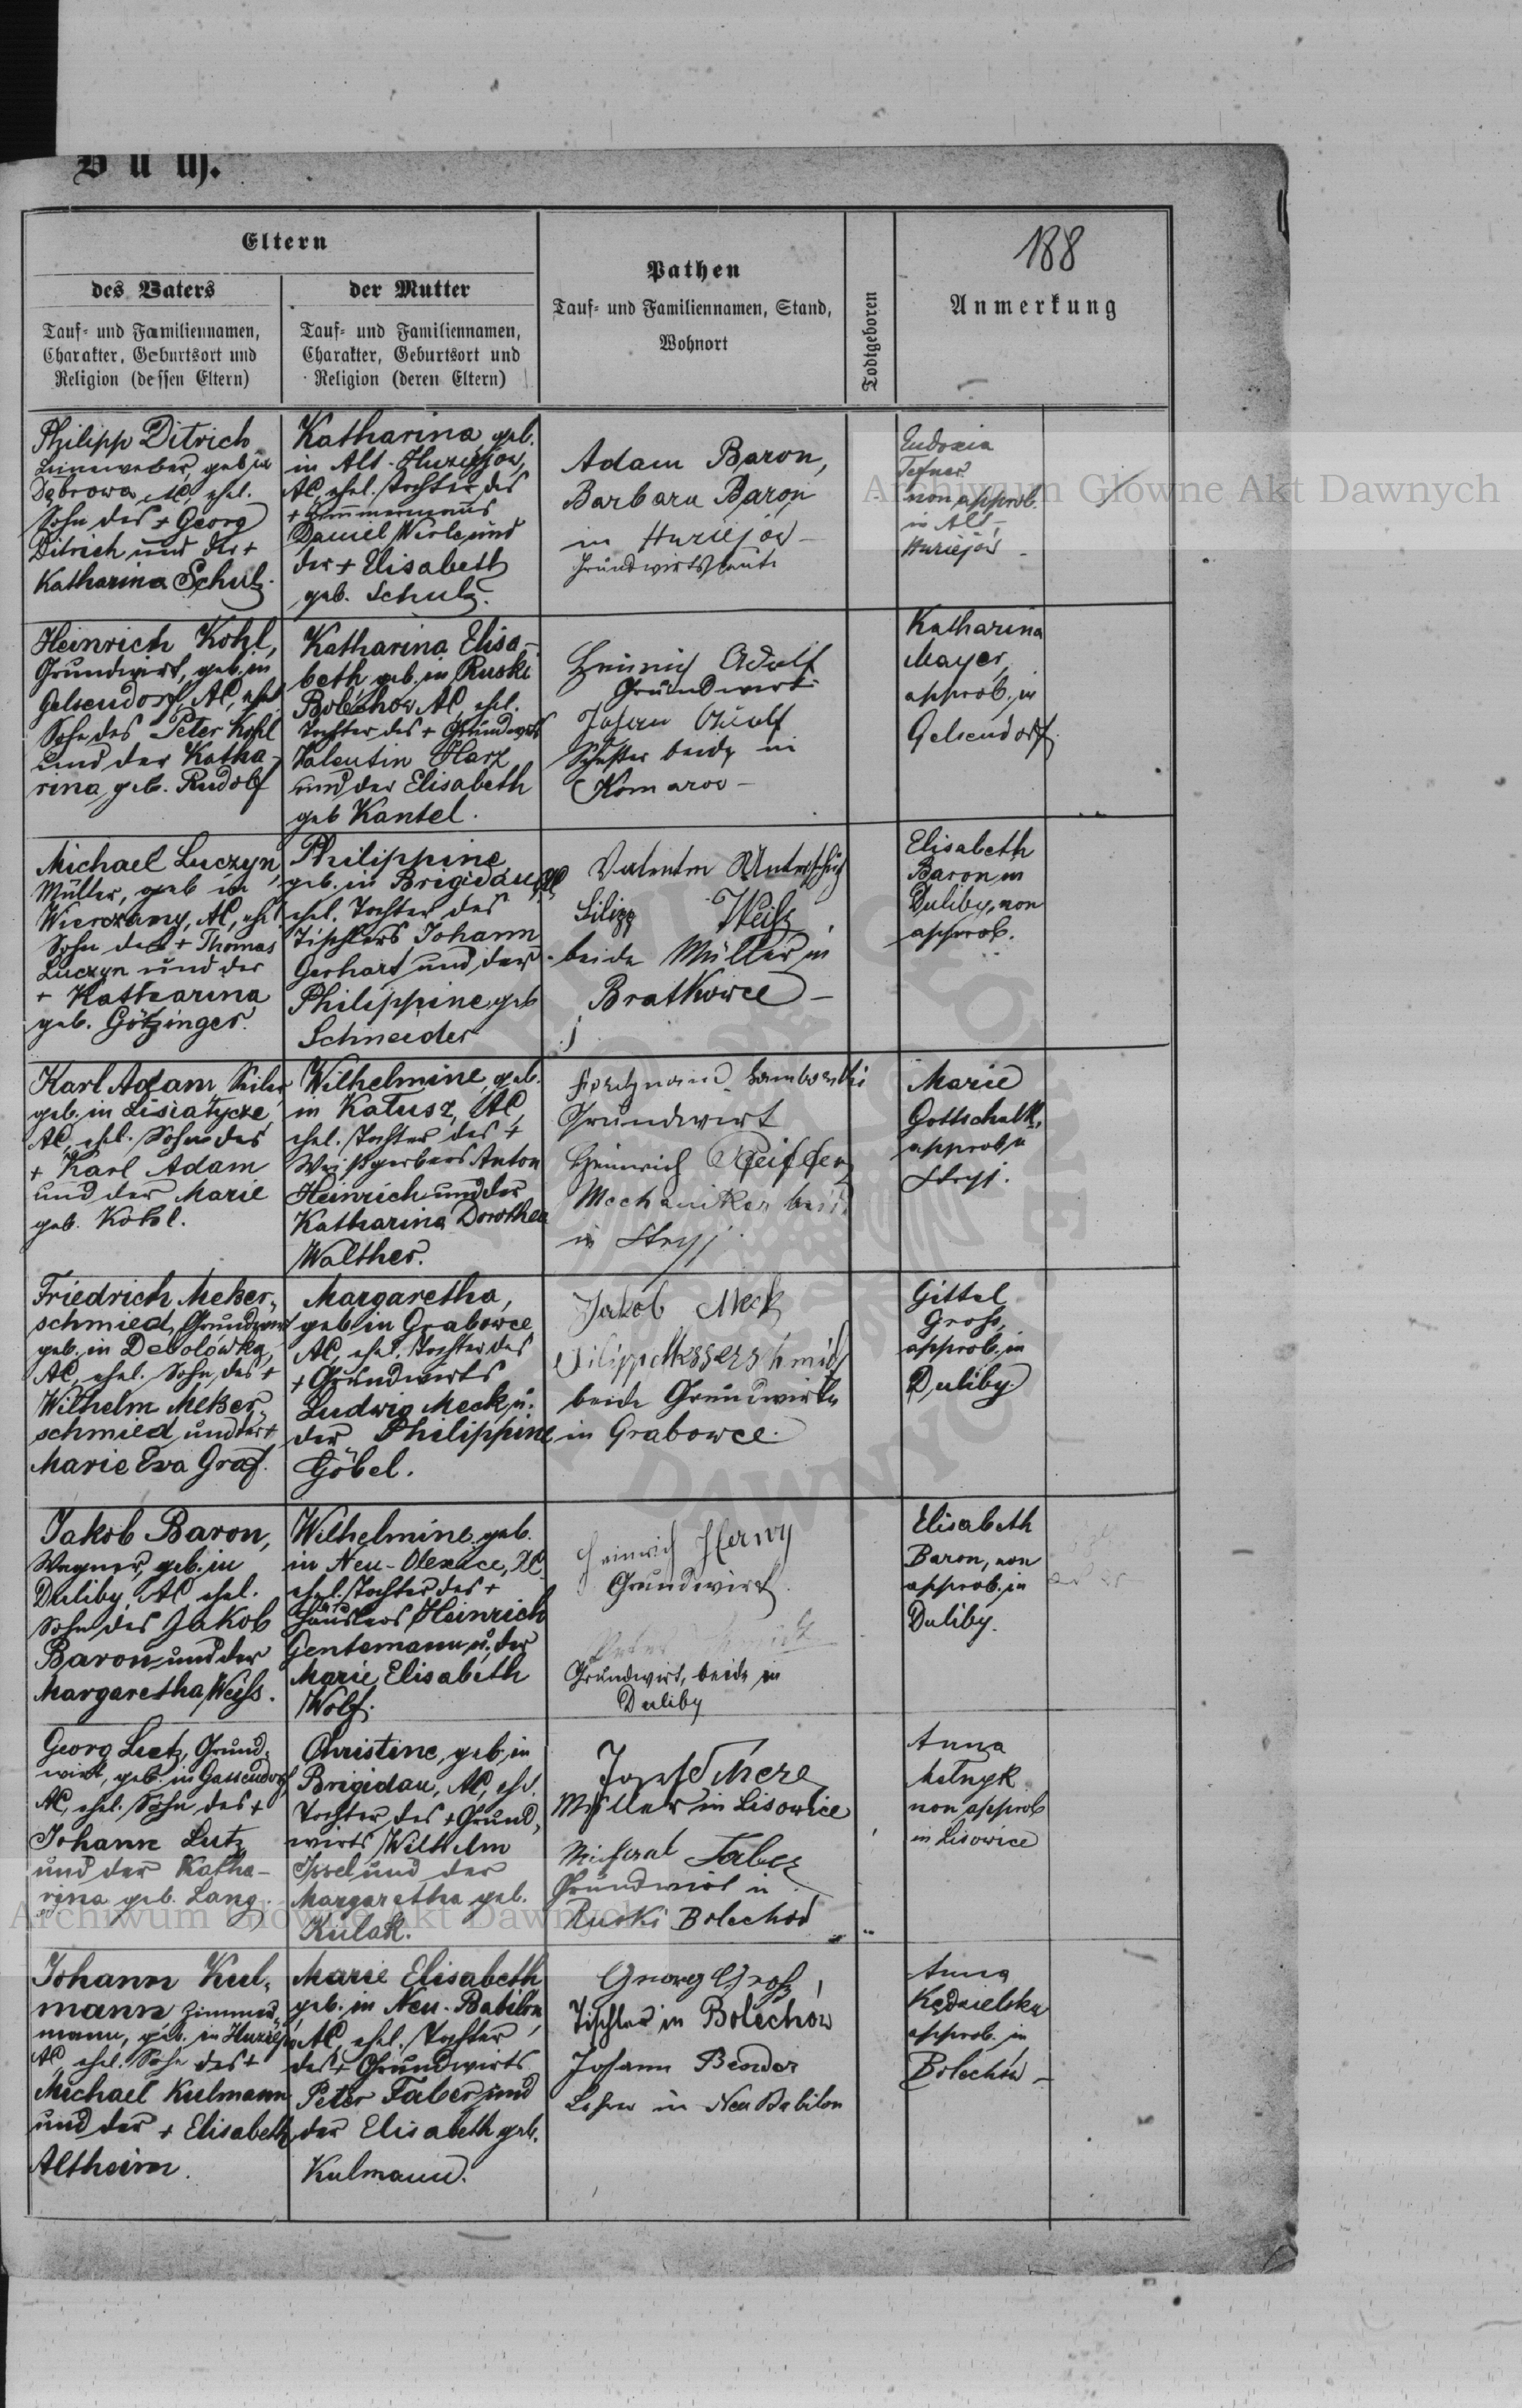 Buch.
188
Eltern
des Vaters
Tauf- und Familiennamen,
Charakter, Geburtsort und
Religion (dessen Eltern)
der Mutter
Tauf- und Familiennamen,
Charakter, Geburtsort und
Religion (deren Eltern)
Pathen
Tauf- und Familiennamen, Stand,
Wohnort
Todtgeboren
Anmerkung
Philipp Ditrich
Leineweber, geb. in
Dąbrowa, AC, ehel.
Sohn des + Georg
Ditrich und der +
Katharina Schulz.
Katharina geb.
in Alt-
AC, ehel. Tochter des
+ Zimmermanns
Daniel und
der + Elisabeth
geb. Schulz.
Adam Baron,
Barbara Baron
in Huziejów -
Grundwirtsleute
Eudoxia
non approb.
in Alt-
Huziejów -
Heinrich Kohl,
Grundwirt, geb. in
Gelsendorf, AC, ehel.
Sohn des Peter Kohl
und der Katha-
rina, geb. Rudolf
Katharina Elisa-
beth geb. in Ruski
Bolechow AC, ehel.
Tochter des + Grundwirts
Valentin Harz
und der Elisabeth
geb Kantel.
Heinrich Adolf
Grundwirt
Johann
beide in
Komarow -
Katharina
Mayer,
approb. in
Gelsendorf.
Michael Luczyn,
Müller, geb in
AC, ehel.
Sohn des + Thomas
Luczyn und der
+ Katharina
geb. Götzinger.
Philippine
geb. in Brigidau, AC
ehel. Tochter des
Tischlers Johann
Gerhart und der
Philippine geb
Schneider
Valentin
Filipp Weisz
beide Müller in
Bratkowce -
Elisabeth
Baron in
Duliby, non
approb.
Karl Adam Seiler
geb. in Lisiatycze,
AC, ehel. Sohn des
+ Karl Adam
und der Marie
geb. Kohl.
Wilhelmine, geb.
in Kałusz, AC,
ehel. Tochter des +
Weißgerbers Anton
Heinrich und der
Katharina Dorothea
Walther.
Grundwirt
Heinrich
Mechaniker beide
in Stryj.
Marie
Gottschalk,
approb. in
Stryj.
Friedrich Meßer-
schmied, Grundwirt
geb. in Debolówka,
AC, ehel. Sohn des +
Wilhelm Meßer-
schmied und der +
Marie Eva Graf.
Margaretha,
geb in Grabowce
AC, ehel. Tochter des
+ Grundwirts
Ludwig Meck u.
der Philippine
Göbel.
Jakob Mek
Filipp Messerschmid
beide Grundwirte
in Grabowce.
Gittel
Gross,
approb. in
Duliby.
Jakob Baron,
Wagner, geb. in
Duliby, AC ehel.
Sohn des Jakob
Baron und der
Margaretha Weiss.
Wilhelmine geb.
in Neu-Olexice, AC
ehel. Tochter des +
Häuslers Heinrich
Gentemann u. der
Marie Elisabeth
Wolf.
Heinrich Herwy
Grundwirt
Grundwirt, beide in
Duliby
Elisabeth
Baron, non
approb. in
Duliby.
Georg Lutz, Grund-
wirt, geb. in Gassendorf,
AC, ehel. Sohn des +
Johann Lutz
und der Katha-
rina geb. Lang.
Christine, geb. in
Brigidau, AC, ehel.
Tochter des + Grund-
wirts Wilhelm
Issel und der
Margaretha geb.
Kulak.
Müller in Lisowice
Michael Faber
Grundwirt in
Ruski Bolechod
Anna
Melnyk
non approb
in Lisowice
Johann Kul-
mann Zimmer-
mann, geb. in
AC, ehel. Sohn des +
Michael Kulmann
und der + Elisabeth
Altheim.
Marie Elisabeth
geb. in Neu-Babilon,
AC, ehel. Tochter
des + Grundwirts
Peter Faber und
der Elisabeth geb.
Kulmann.
Georg Groß,
Tischler in Bolechów
Johann Bender
Lehrer in Neu Babilon
Anna
approb. in
Bolechów -
Archiwum Głowne Akt Dawnych
Archiwum Głowne Akt Dawnych